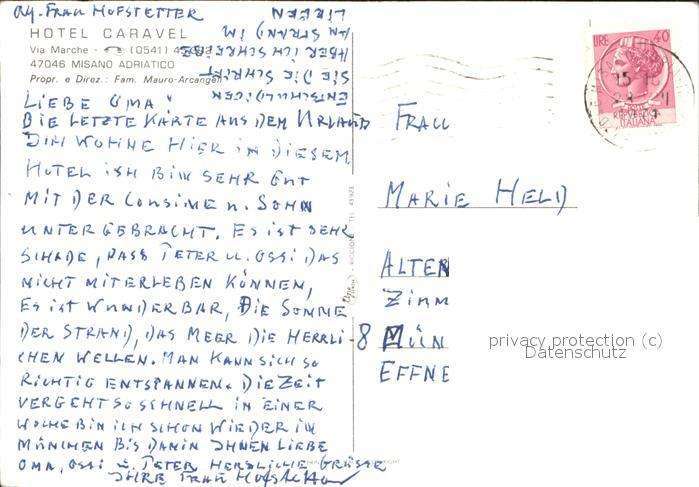 Frau Hofstetter
HOTEL CARAVEL
Via Marche - (0541)
47046 MISANO ADRIATICO
Propr. e Direz.: Fam. Mauro-Arcangeli
ENTSCHULDIGEN
SIE DIE SCHRIFT
ABER ICH SCHREIBE
AM STRAND IM
LIEGEN
LIEBE OMA!
DIE LETZTE KARTE AUS DEM URLAUB
ICH WOHNE HIER IN DIESEM
HOTEL ICH BIN SEHR GUT
MIT DER COUSINE U. SOHN
UNTERGEBRACHT. ES IST SEHR
SCHADE, DASS PETER U. OSSI DAS
NICHT MITERLEBEN KÖNNEN,
ES IST WUNDERBAR, DIE SONNE
DER STRAND, DAS MEER DIE HERRLI-
CHEN WELLEN. MAN KANN SICH SO
RICHTIG ENTSPANNEN. DIE ZEIT
VERGEHT SO SCHNELL IN EINER
WOCHE BIN ICH SCHON WIEDER IN
MÜNCHEN BIS DAHIN IHNEN LIEBE
OMA, OSSI U. PETER HERZLICHE GRÜSSE
IHRE FRAU Hofstetter
LIRE 40
REPUBBLICA
ITALIANA
FRAU
MARIE HELD
ALTEN
ZIMM
8 MÜN
EFFNE
privacy protection (c)
Datenschutz